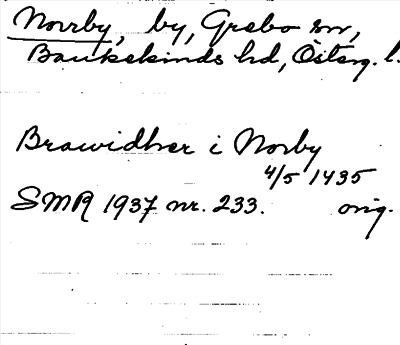 Norrby, by, Grebo sn,
Bankekinds hd, Österg. l.
Brawidher i Norby
4/5 1435
SMR 1937 nr. 233. orig.